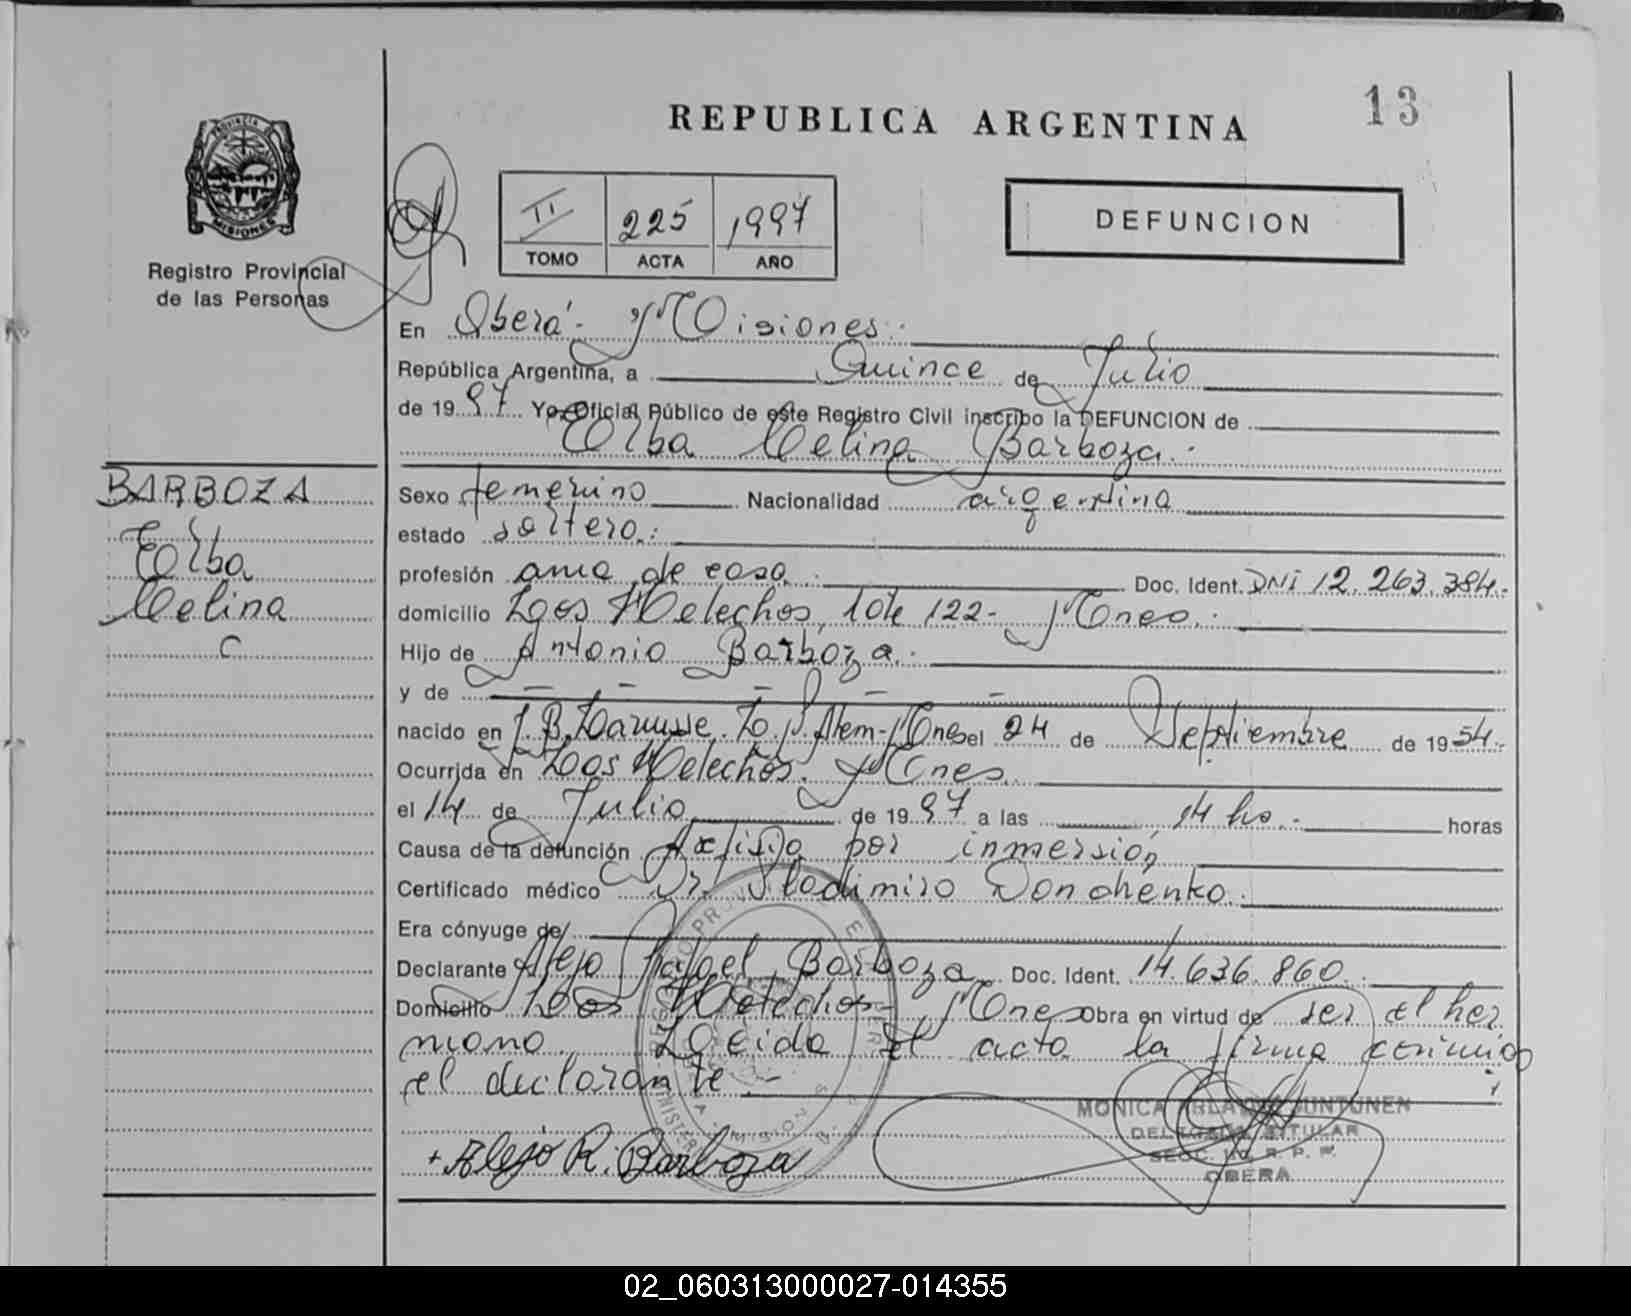 13
REPUBLICA ARGENTINA
PROVINCIA DE MISIONES
Registro Provincial
de las Personas
II 225 1997
TOMO ACTA AÑO
DEFUNCION
En Oberá - Misiones.-
República Argentina, a Quince de Julio
de 1997 Yo, Oficial Público de este Registro Civil inscribo la DEFUNCION de
Elba Celina Barboza.-
BARBOZA
Elba
Celina
C
Sexo femenino Nacionalidad argentina
estado soltero.:
profesión ama de casa. Doc. Ident. DNI 12.263.384.-
domicilio Los Helechos, lote 122- Mnes.:
Hijo de Antonio Barboza.:
y de - - - - -
nacido en J. B. Larusse. L. N. Alem-Mnes el 24 de Septiembre de 1954.-
Ocurrida en Los Helechos. Mnes.
el 14 de Julio de 1997 a las 14 hs.- horas
Causa de la defunción Axfisia por inmersión
Certificado médico Dr. Vladimiro Donchenko.
Era cónyuge de
Declarante Alejo Rafael Barboza Doc. Ident. 14.636.860.
Domicilio Los Helechos- Mnes Obra en virtud de ser el her
mano Leida el acta la firma conmigo
el declarante -
MONICA JUNTUNEN
DELEGADA TITULAR
SECC. R. P. P.
OBERA
+ Alejo R. Barboza
02_060313000027-014355